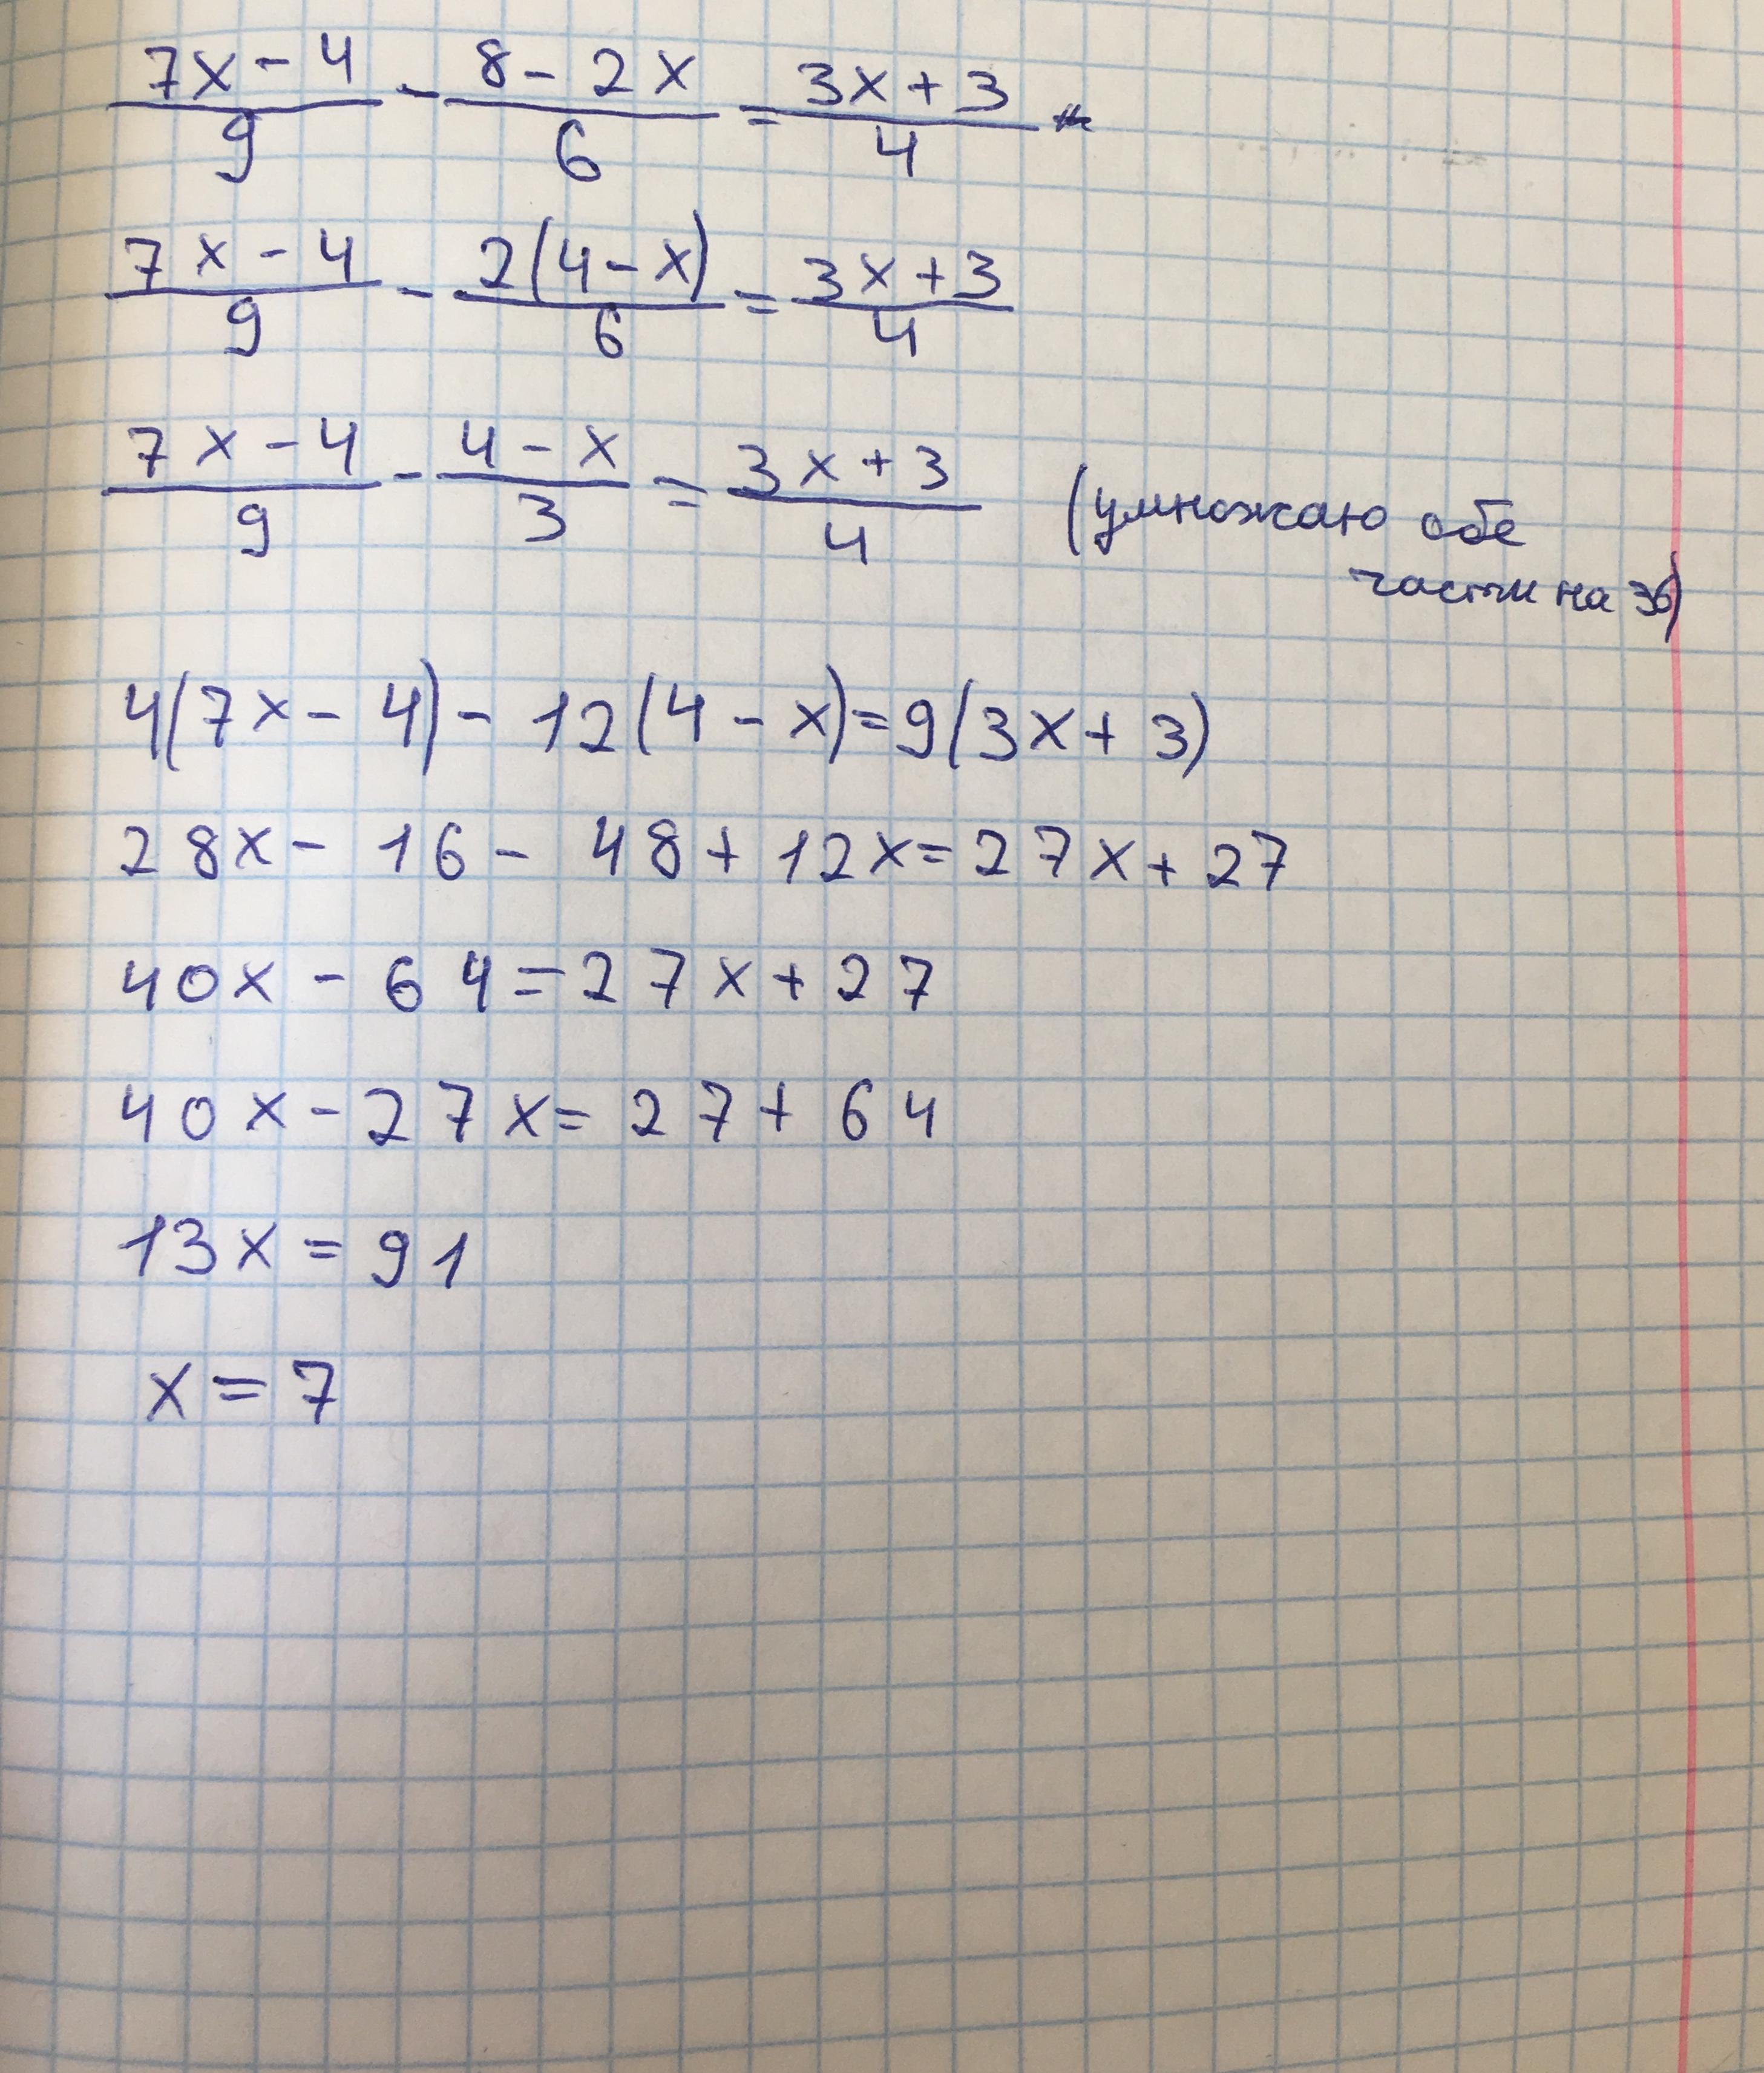 (7x-4)/9 - (8-2x)/6 = (3x+3)/4
(7x-4)/9 - 2(4-x)/6 = (3x+3)/4
(7x-4)/9 - (4-x)/3 = (3x+3)/4 (умножаю обе
части на 36)
4(7x-4)-12(4-x)=9(3x+3)
28x-16-48+12x=27x+27
40x-64=27x+27
40x-27x=27+64
13x=91
x=7